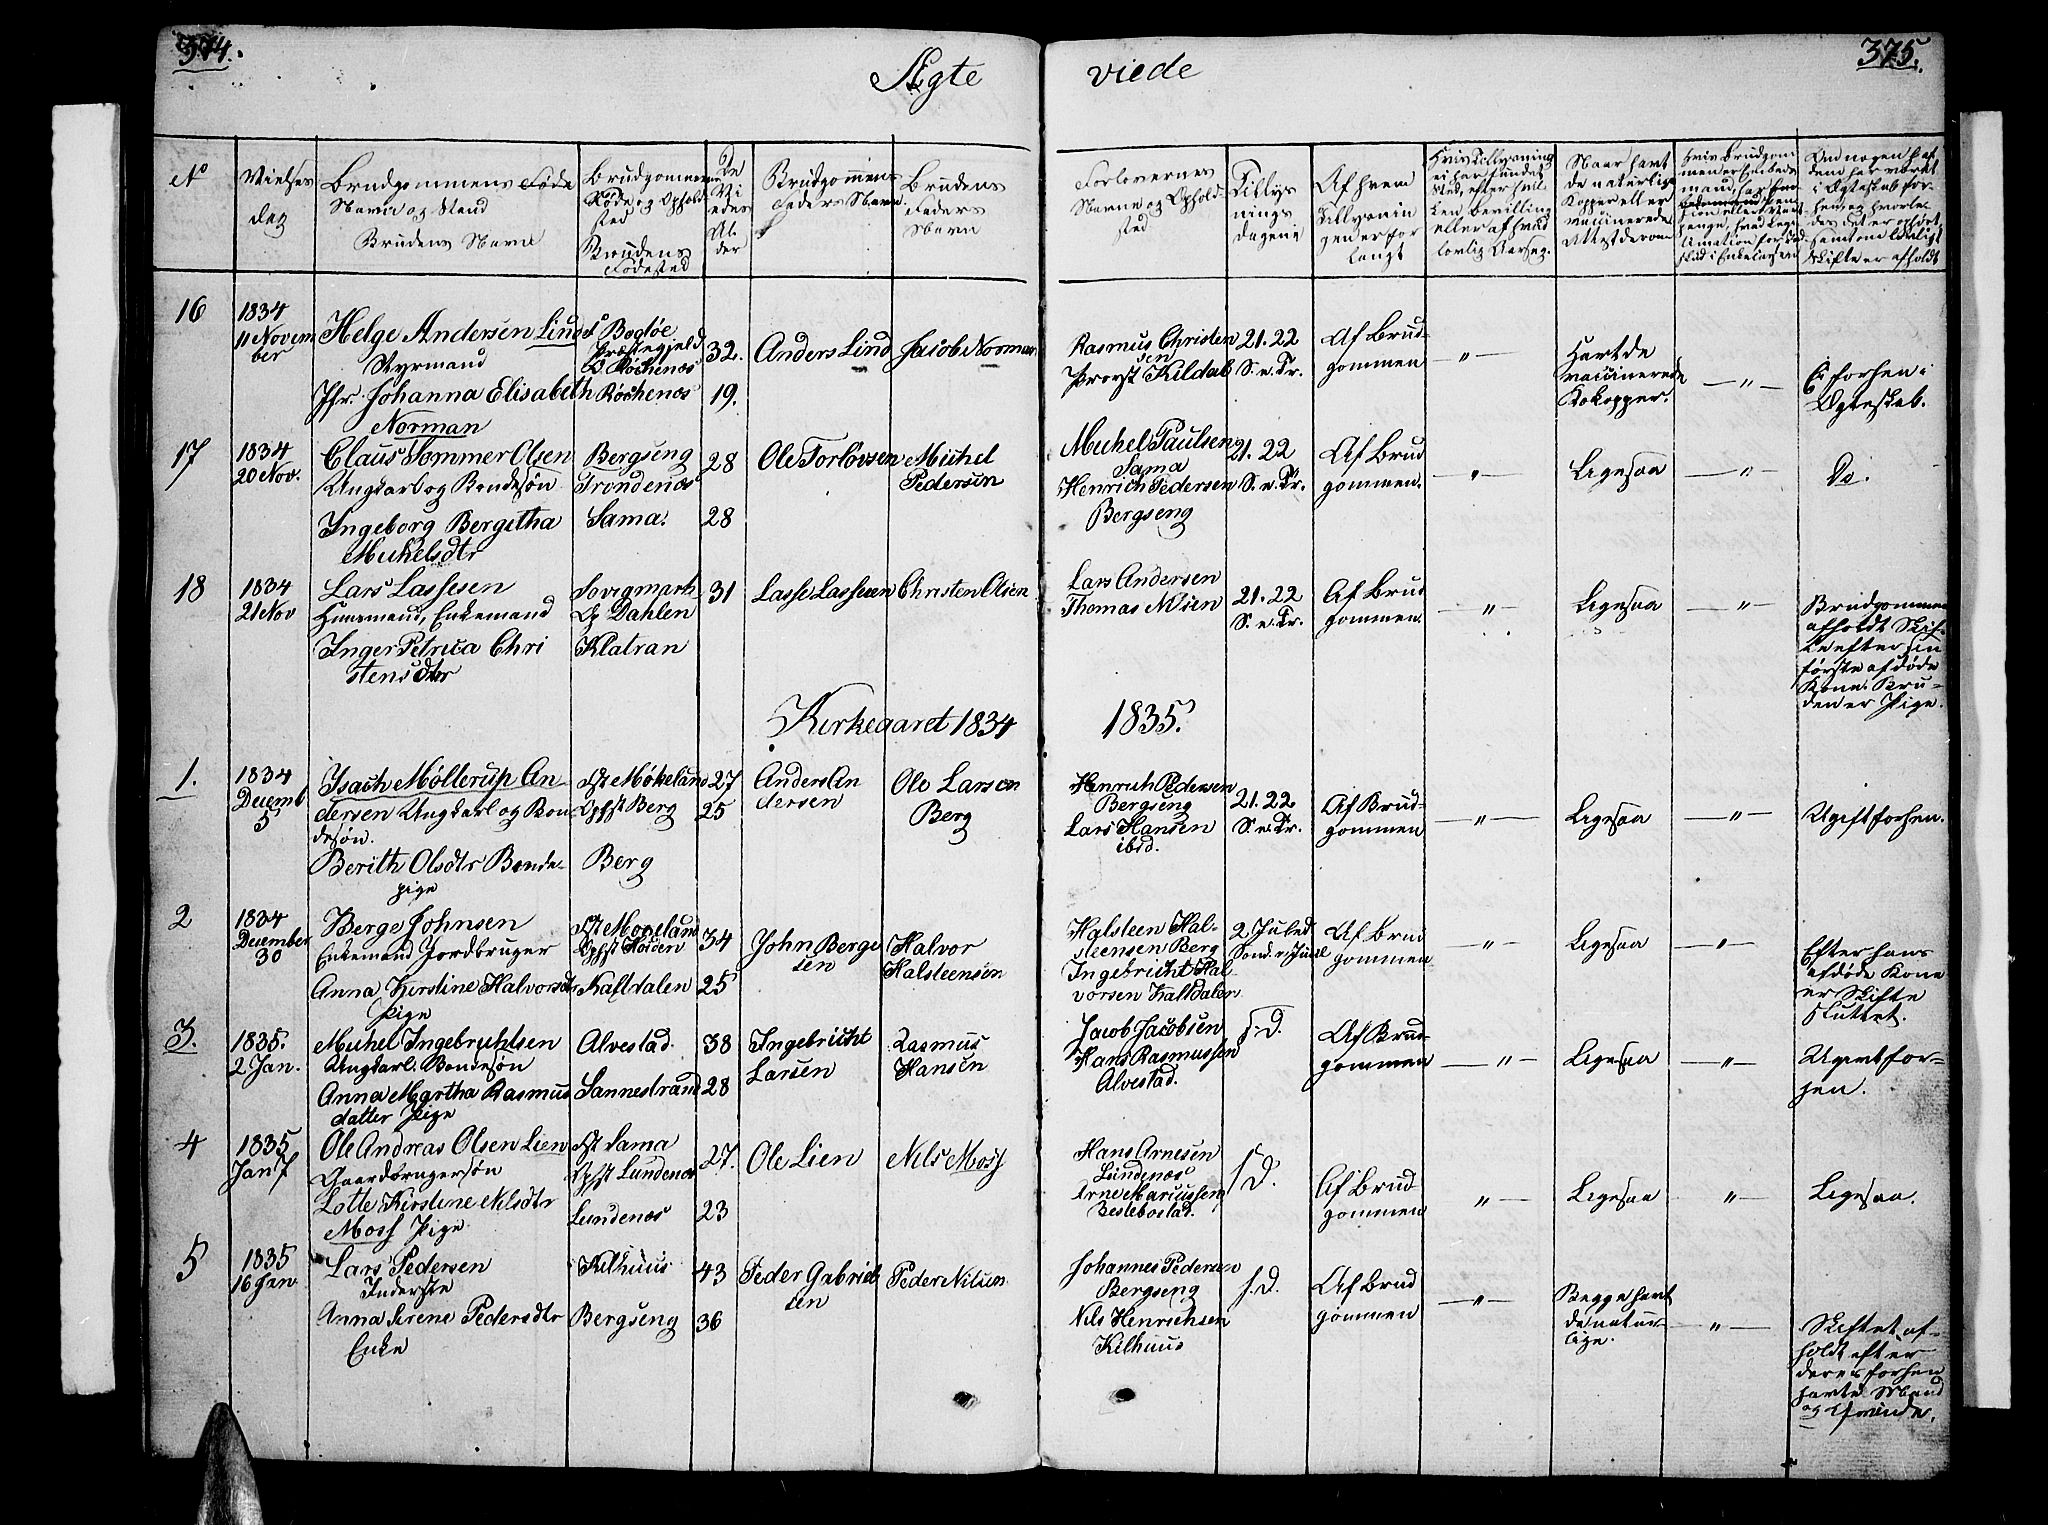 374.
375.
Ægte
viede
No
Vielses
dag
Brudgommens Føde
Navn og Stand
Brudens Navn
Brudgommens
Føde og Ophold-
sted
Brudens
Fødested
De
Vi
edes
Al
der
Brudgommens
Faders Navn
Brudens
Faders
Navn
Forlovernes
Navne og Ophold-
sted
Tillys
nings
dagene
Af hvem
Tillysnin
gen er for
langt
Naar havt
de naturlige
Kopper eller
vaccinerede
Attest derom
16
1834
11 Novem
ber
Helge Andersen Lind
Styrmand
Jfr. Johanna Elisabeth
Norman
Præstegjeld
Røchenæs
32.
19.
Anders Lind
Jacob Norman
Rasmus Christen
sen
Provst Kildal
21. 22
S. e. Tr.
Af Brud-
gommen
— " —
Havt de
vaccinerede
Kokopper.
— " —
Ei forhen i
Ægteskab.
17
1834
20 Nov.
Claus Tommer Olsen
Ungkarl og Bondesøn
Ingeborg Bergitha
Michelsdtr
Bergseng
Trondenæs
Sama.
28
28
Ole Torlovsen
Michel
Pedersen
Michel Paulsen
Sama
Henrich Pedersen
Bergseng
21. 22
S. e. Tr.
Af Brud
gommen.
— " —
Ligesaa
— " —
Do.
18
1834
21 Nov
Lars Lassesen
Huusmand, Enkemand
Inger Petrica Chri
stensdtr
Dahlen
Klatran
31
Lasse Lassesen
Christen Olsen
Lars Andersen
Thomas Nilsen
21. 22
S. e. Tr.
Af Brud
gommen.
— " —
Ligesaa
— " —
Brudgommen
afholdt Skif-
te efter sin
første afdøde
Kone. Bru-
den er Pige.
Kirkeaaret 1834
1835.
1.
1834
Decemb
5
Isach Møllerup An-
dersen Ungkarl og Bon-
desøn.
Berith Olsdtr Bonde-
pige
Fst Møkeland
Ophst Berg
Berg
27
25
Anders An
dersen
Ole Larsen
Berg
Henrich Pedersen
Bergseng
Lars Hansen
ibid.
21. 22
S. e. Tr.
Af Brud-
gommen
— " —
Ligesaa
— " —
Ugift forhen.
2
1834
December
30
Berge Johnsen
Enkemand Jordbruger
Anna Kirstine Halvorsdtr
Pige
Fst Møgeland
Kaltdalen
34
25
John Berge
sen
Halvor
Halsteensen
Halsteen Hal-
steensen Berg
Ingebricht Hal-
vorsen Kaltdalen
2 Juled
Sond. e. Juul
Af Brud
gommen
— " —
Ligesaa
— " —
Efter hans
afdøde Kone
er Skifte
sluttet.
3.
1835.
2 Jan.
Michel Ingebrichtsen
Ungkarl. Bondesøn
Anna Martha Rasmus
datter Pige
Alvestad.
Sannestrand
38
28
Ingebricht
Larsen
Rasmus
Hansen
Jacob Jacobsen
Hans Rasmussen
Alvestad.
s. D.
Af Brud-
gommen
— " —
Ligesaa
— " —
Ugivt for-
hen.
4
1835
Jan 7
Ole Andreas Olsen Lien
Gaardbrugersøn
Lotte Kirstine Nilsdtr
Moss Pige
Fst Sama
Ophst Lundenæs
Lundenæs
27.
23
Ole Lien
Nils Moss
Hans Arnesen
Lundenæs
Arne Marcussen
Beslebostad.
s. D.
Af Brud
gommen
" —
Ligesaa
" —
Ligesaa.
5
1835
16 Jan
Lars Pedersen
Inderste
Anna Serene Pedersdtr
Enke
Kilhuus
Bergseng
43
36
Peder Gabriel
sen
Peder Nilsen
Johannes Pedersen
Bergseng
Nils Henrichsen
Kilhuus
s. D.
Af Brud
gommen
— " —
Begge havt
de natur-
lige.
— " —
Skiftet af-
holdt efter
deres forhen
havte Mand
og Qvinde.